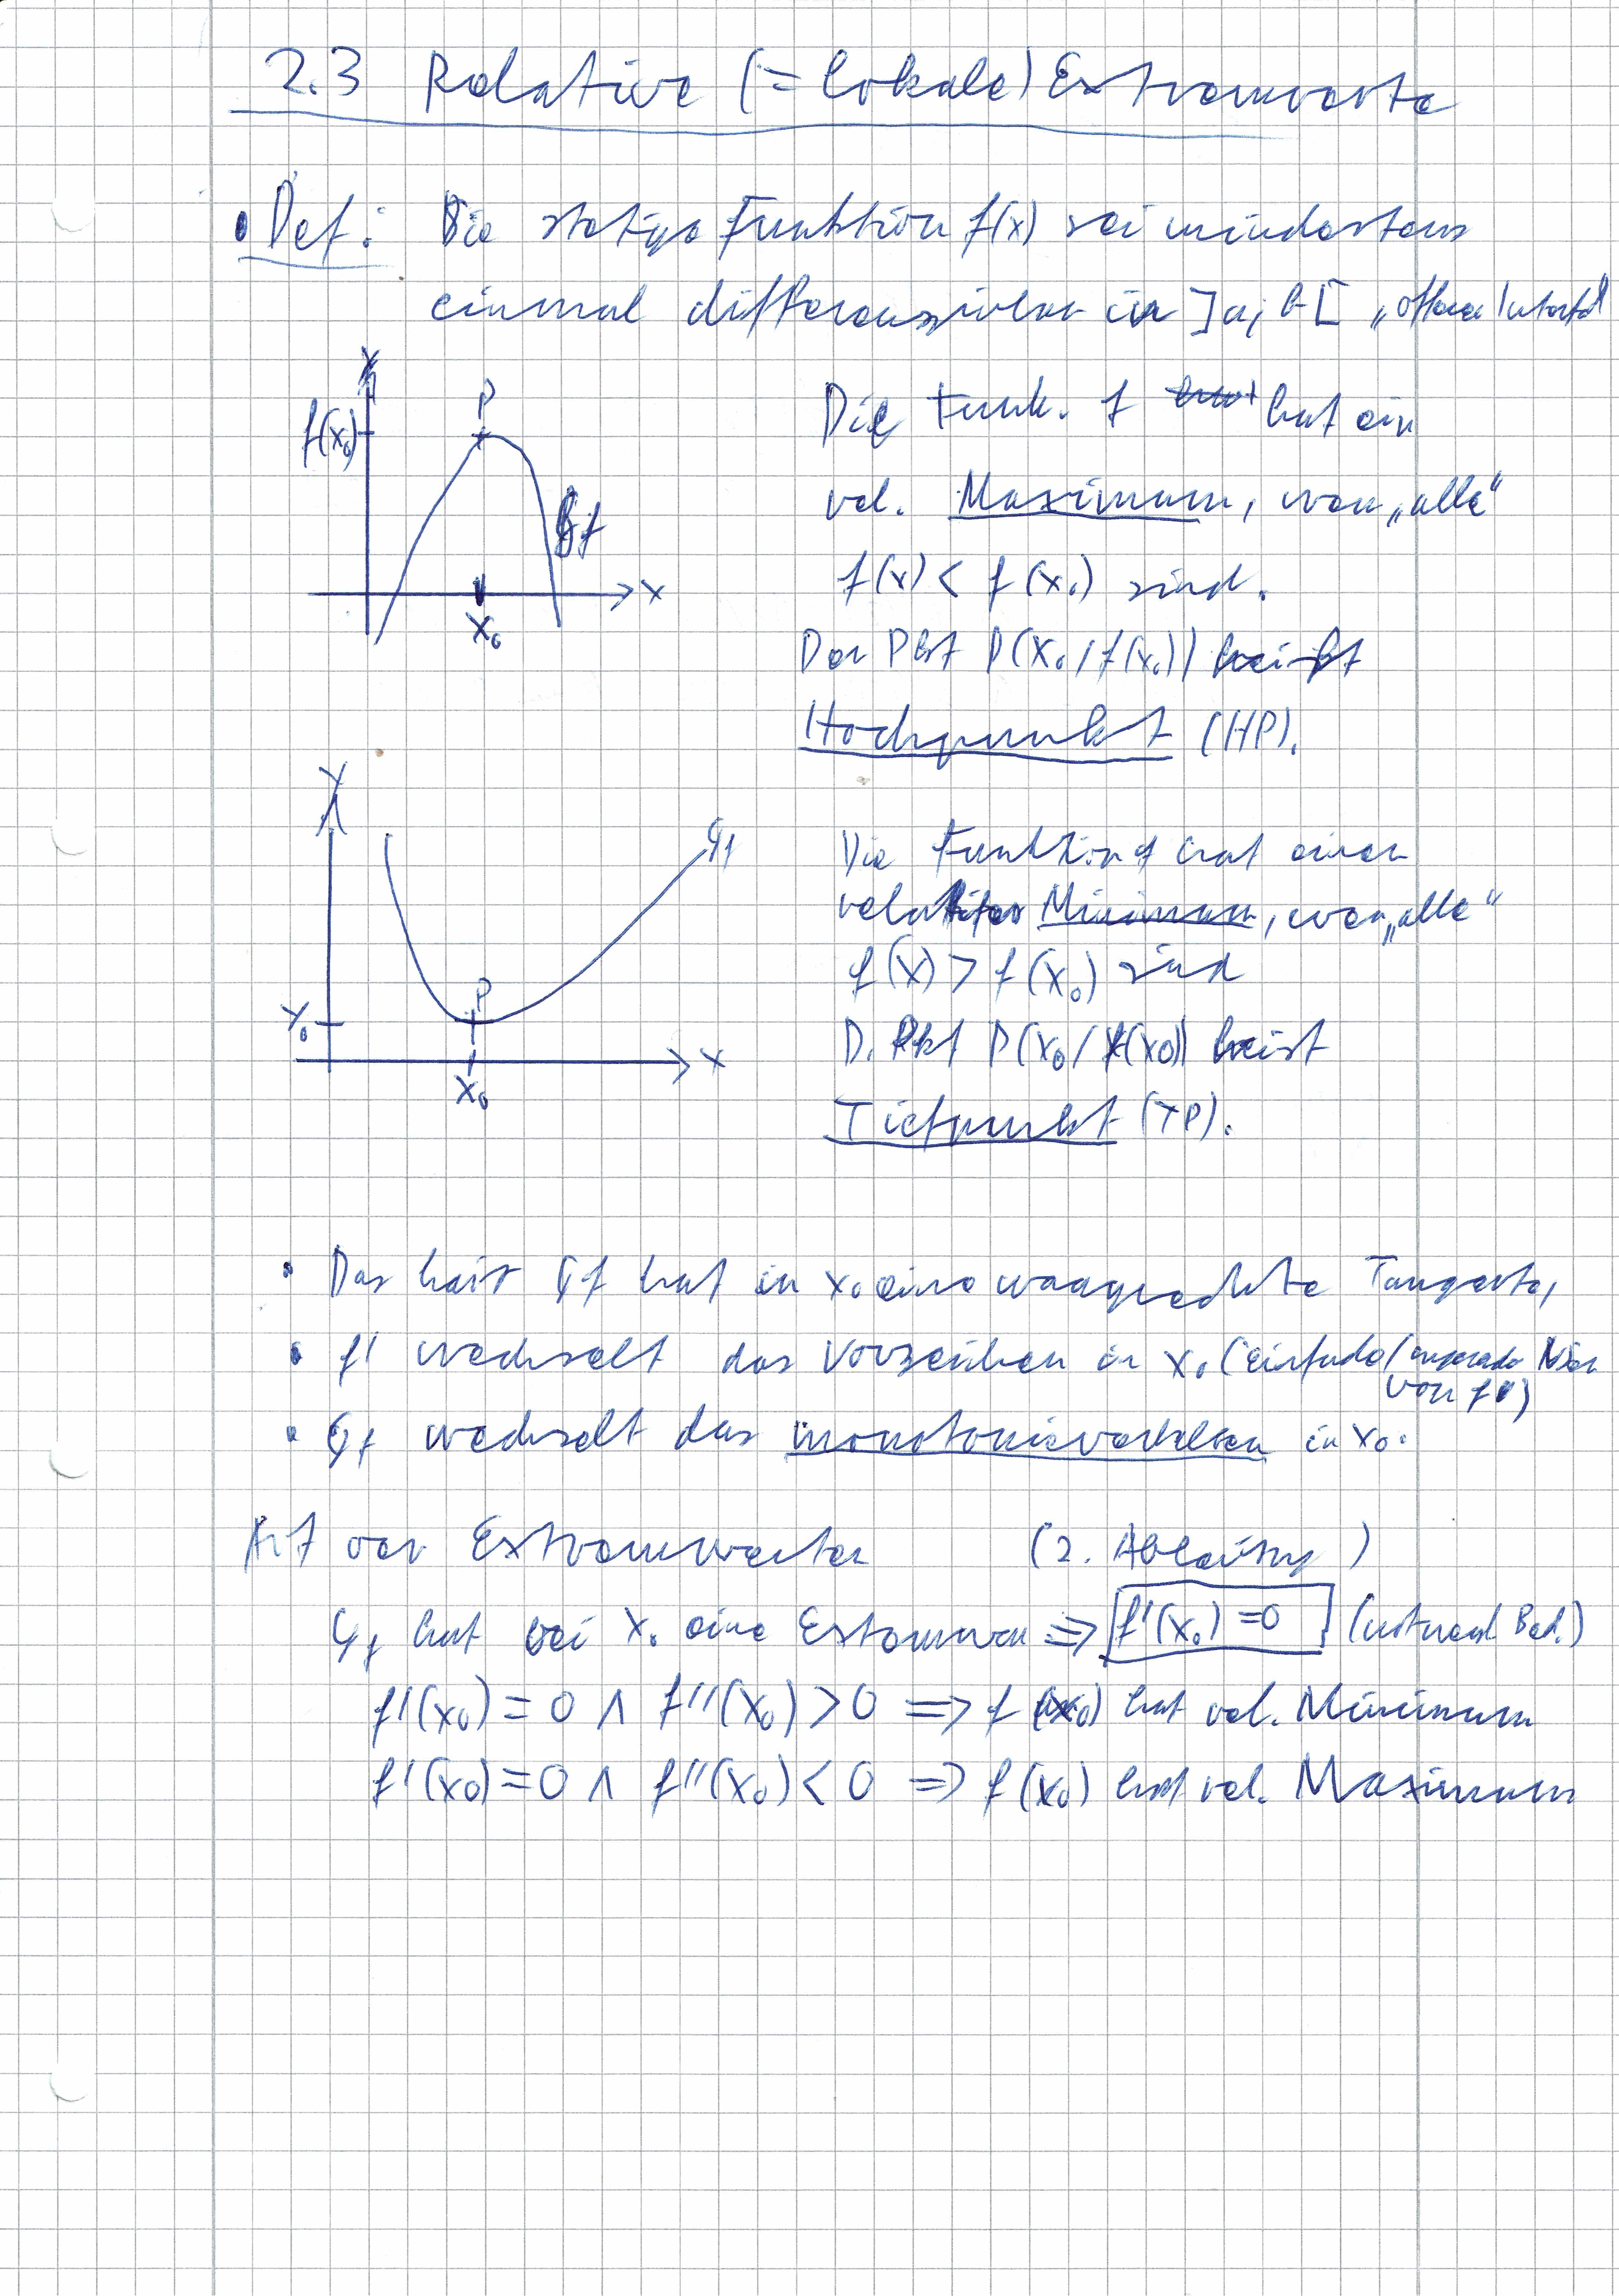 2.3 Relative (= lokale) Extremwerte
• Def: Die stetige Funktion f(x) sei mindestens
einmal differenzierbar in ]a; b[ „offenes Intervall"
y
f(x₀)
P
Gf
x
x₀
Die Funk. f hat ein
rel. Maximum, wenn „alle"
f(x) < f(x₀) sind.
Der Pkt P(x₀/f(x₀)) heißt
Hochpunkt (HP).
y
Gf
P
y₀
x
x₀
Die Funktion f hat einen
relatives Minimum, wen „alle"
f(x) > f(x₀) sind
D. Pkt P(x₀/f(x₀)) heist
Tiefpunkt (TP).
• Das heist Gf hat in x₀ eine waagrechte Tangente,
• f' wechselt das Vorzeichen in x₀ (einfache/ungerade
von f')
• Gf wechselt das monotonieverhalten in x₀.
Art der Extremwerte (2. Ableitung)
Gf hat bei x₀ eine => f'(x₀) = 0 (notwend Bed.)
f'(x₀) = 0 ∧ f''(x₀) > 0 => f (x₀) hat rel. Minimum
f'(x₀) = 0 ∧ f''(x₀) < 0 => f (x₀) hat rel. Maximum